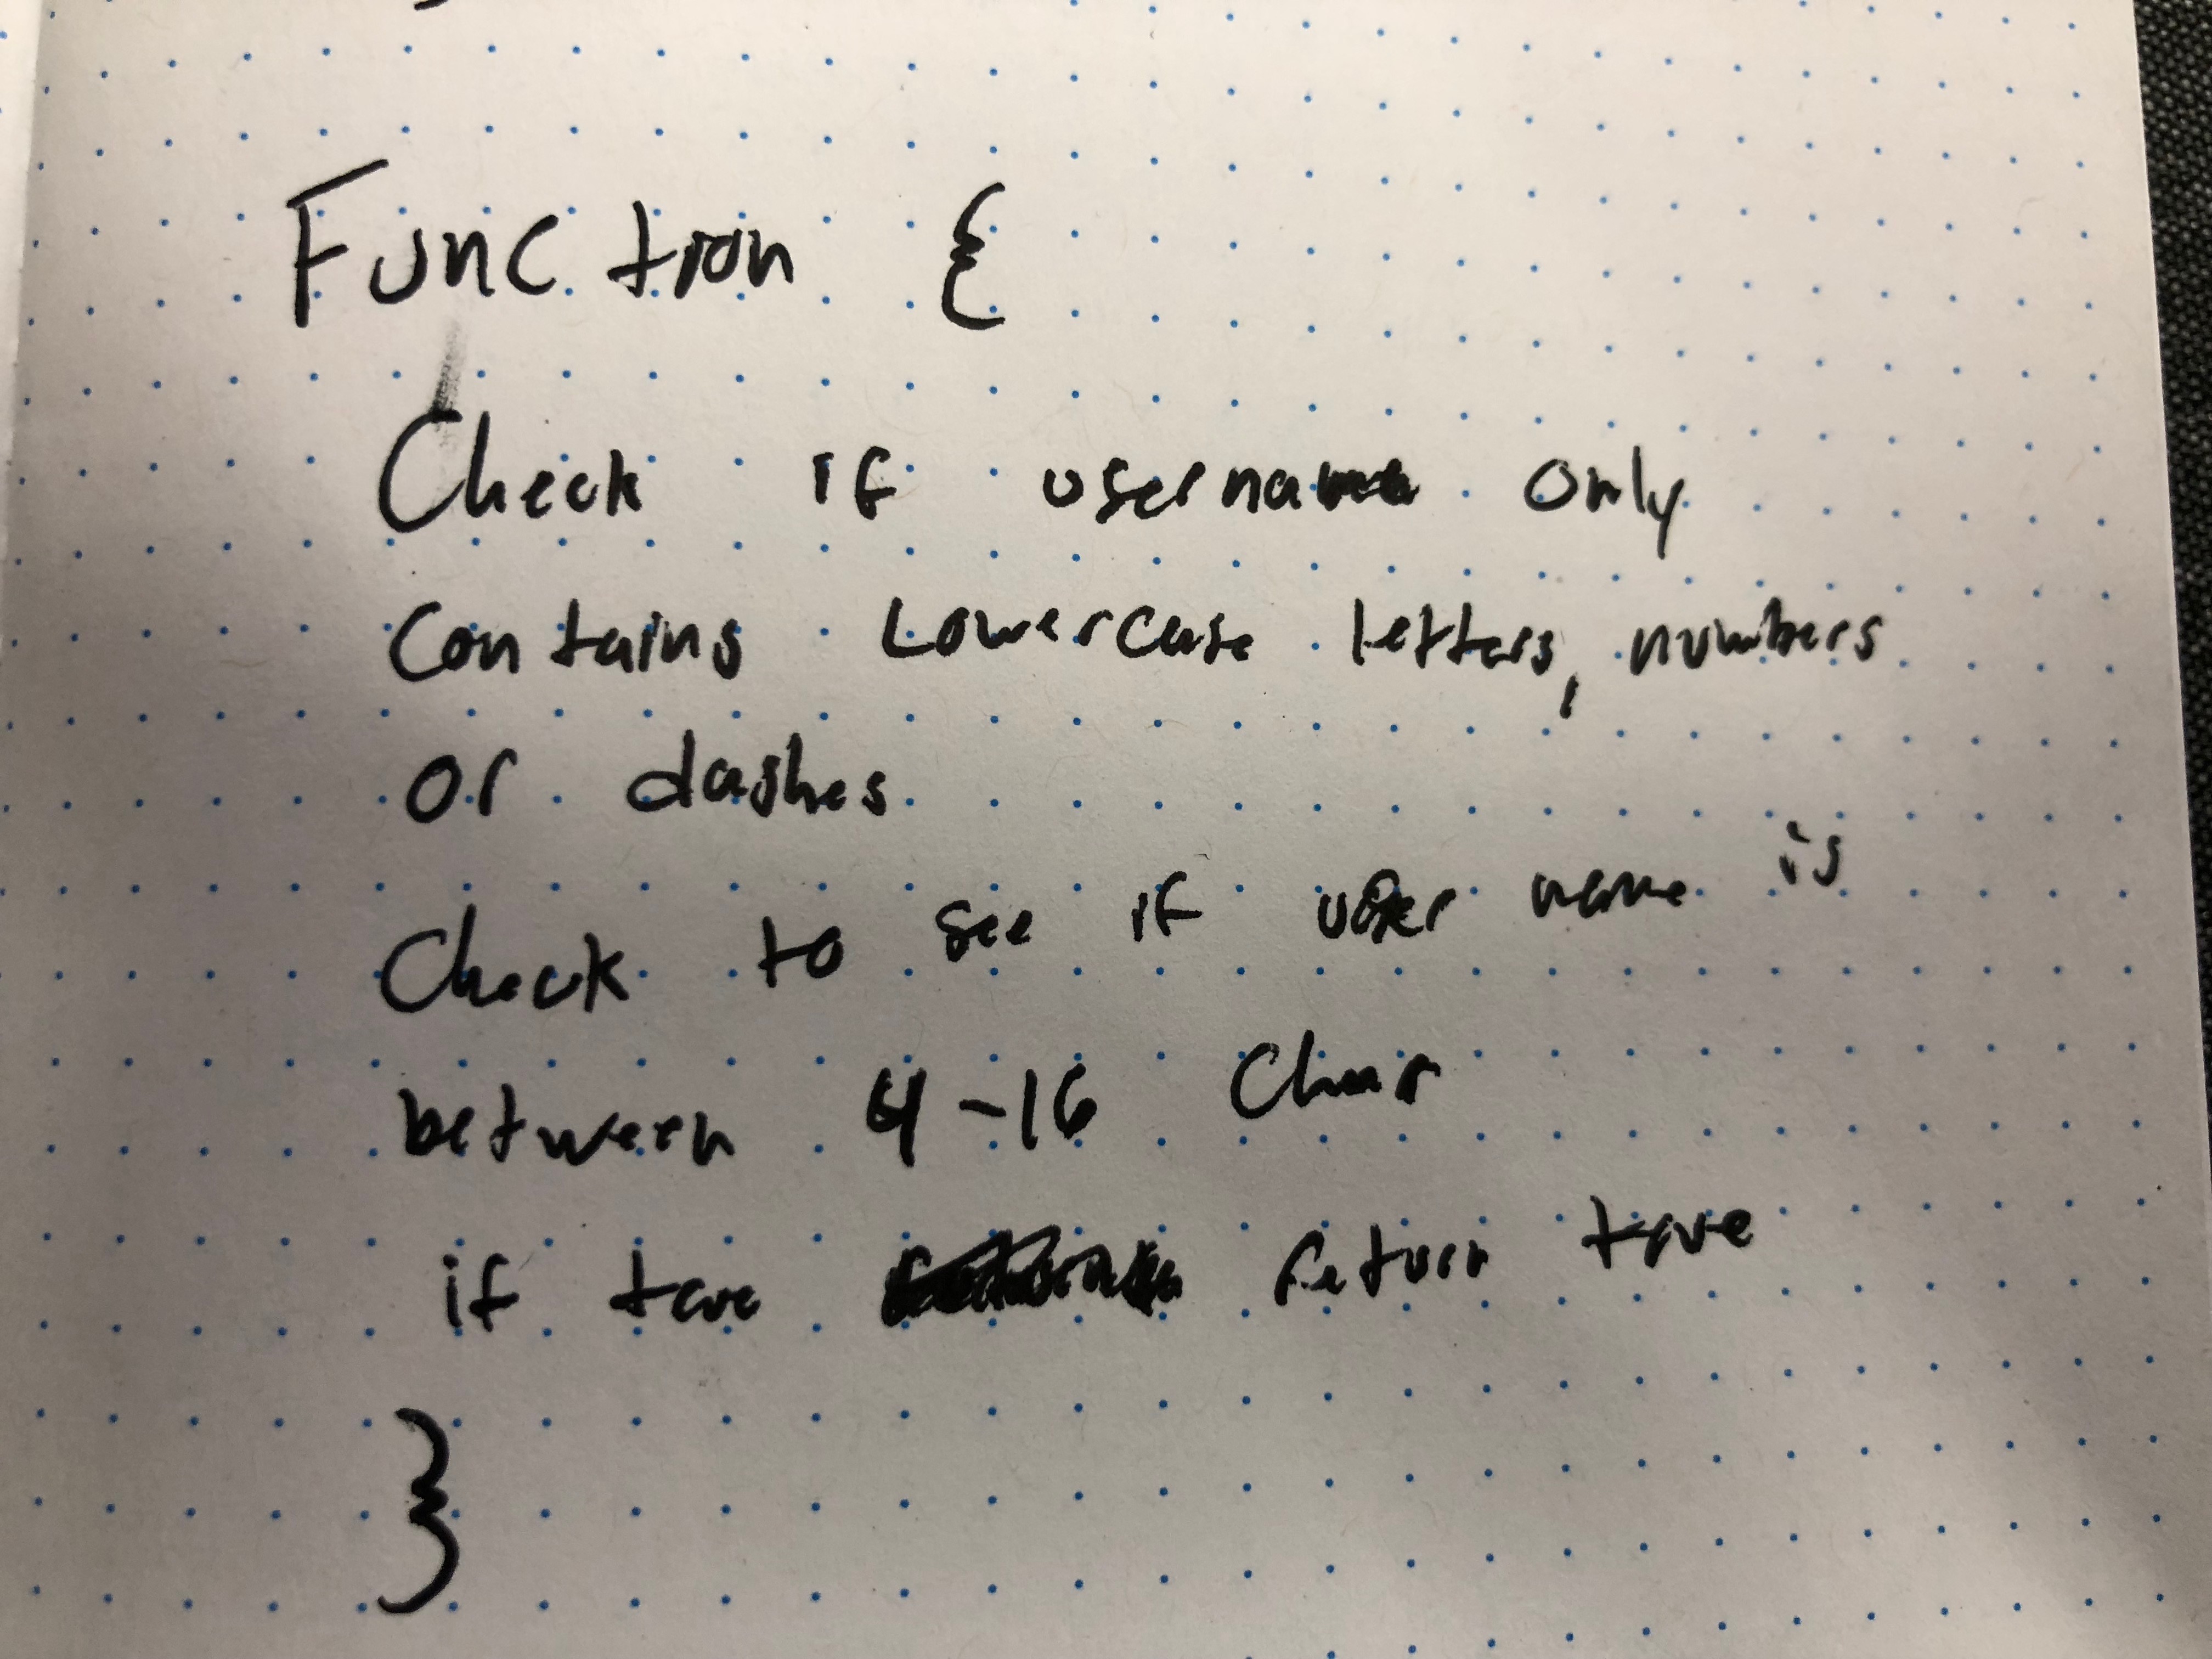 Function {
Check if username only
contains Lowercase letters, numbers
or dashes
Check to see if user name is
between 4-16 Char
if true return true
}